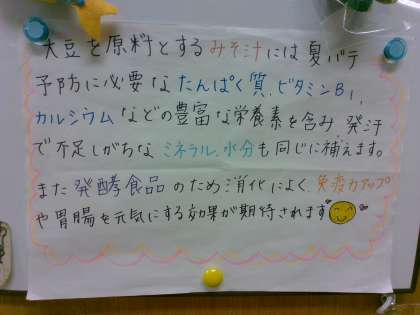 大豆を原料とするみそ汁には夏バテ
予防に必要なたんぱく質、ビタミンB1、
カルシウムなどの豊富な栄養素を含み、発汗
で不足しがちなミネラル、水分も同じに補えます。
また発酵食品のため消化によく、免疫力アップ
や胃腸を元気にする効果が期待されます